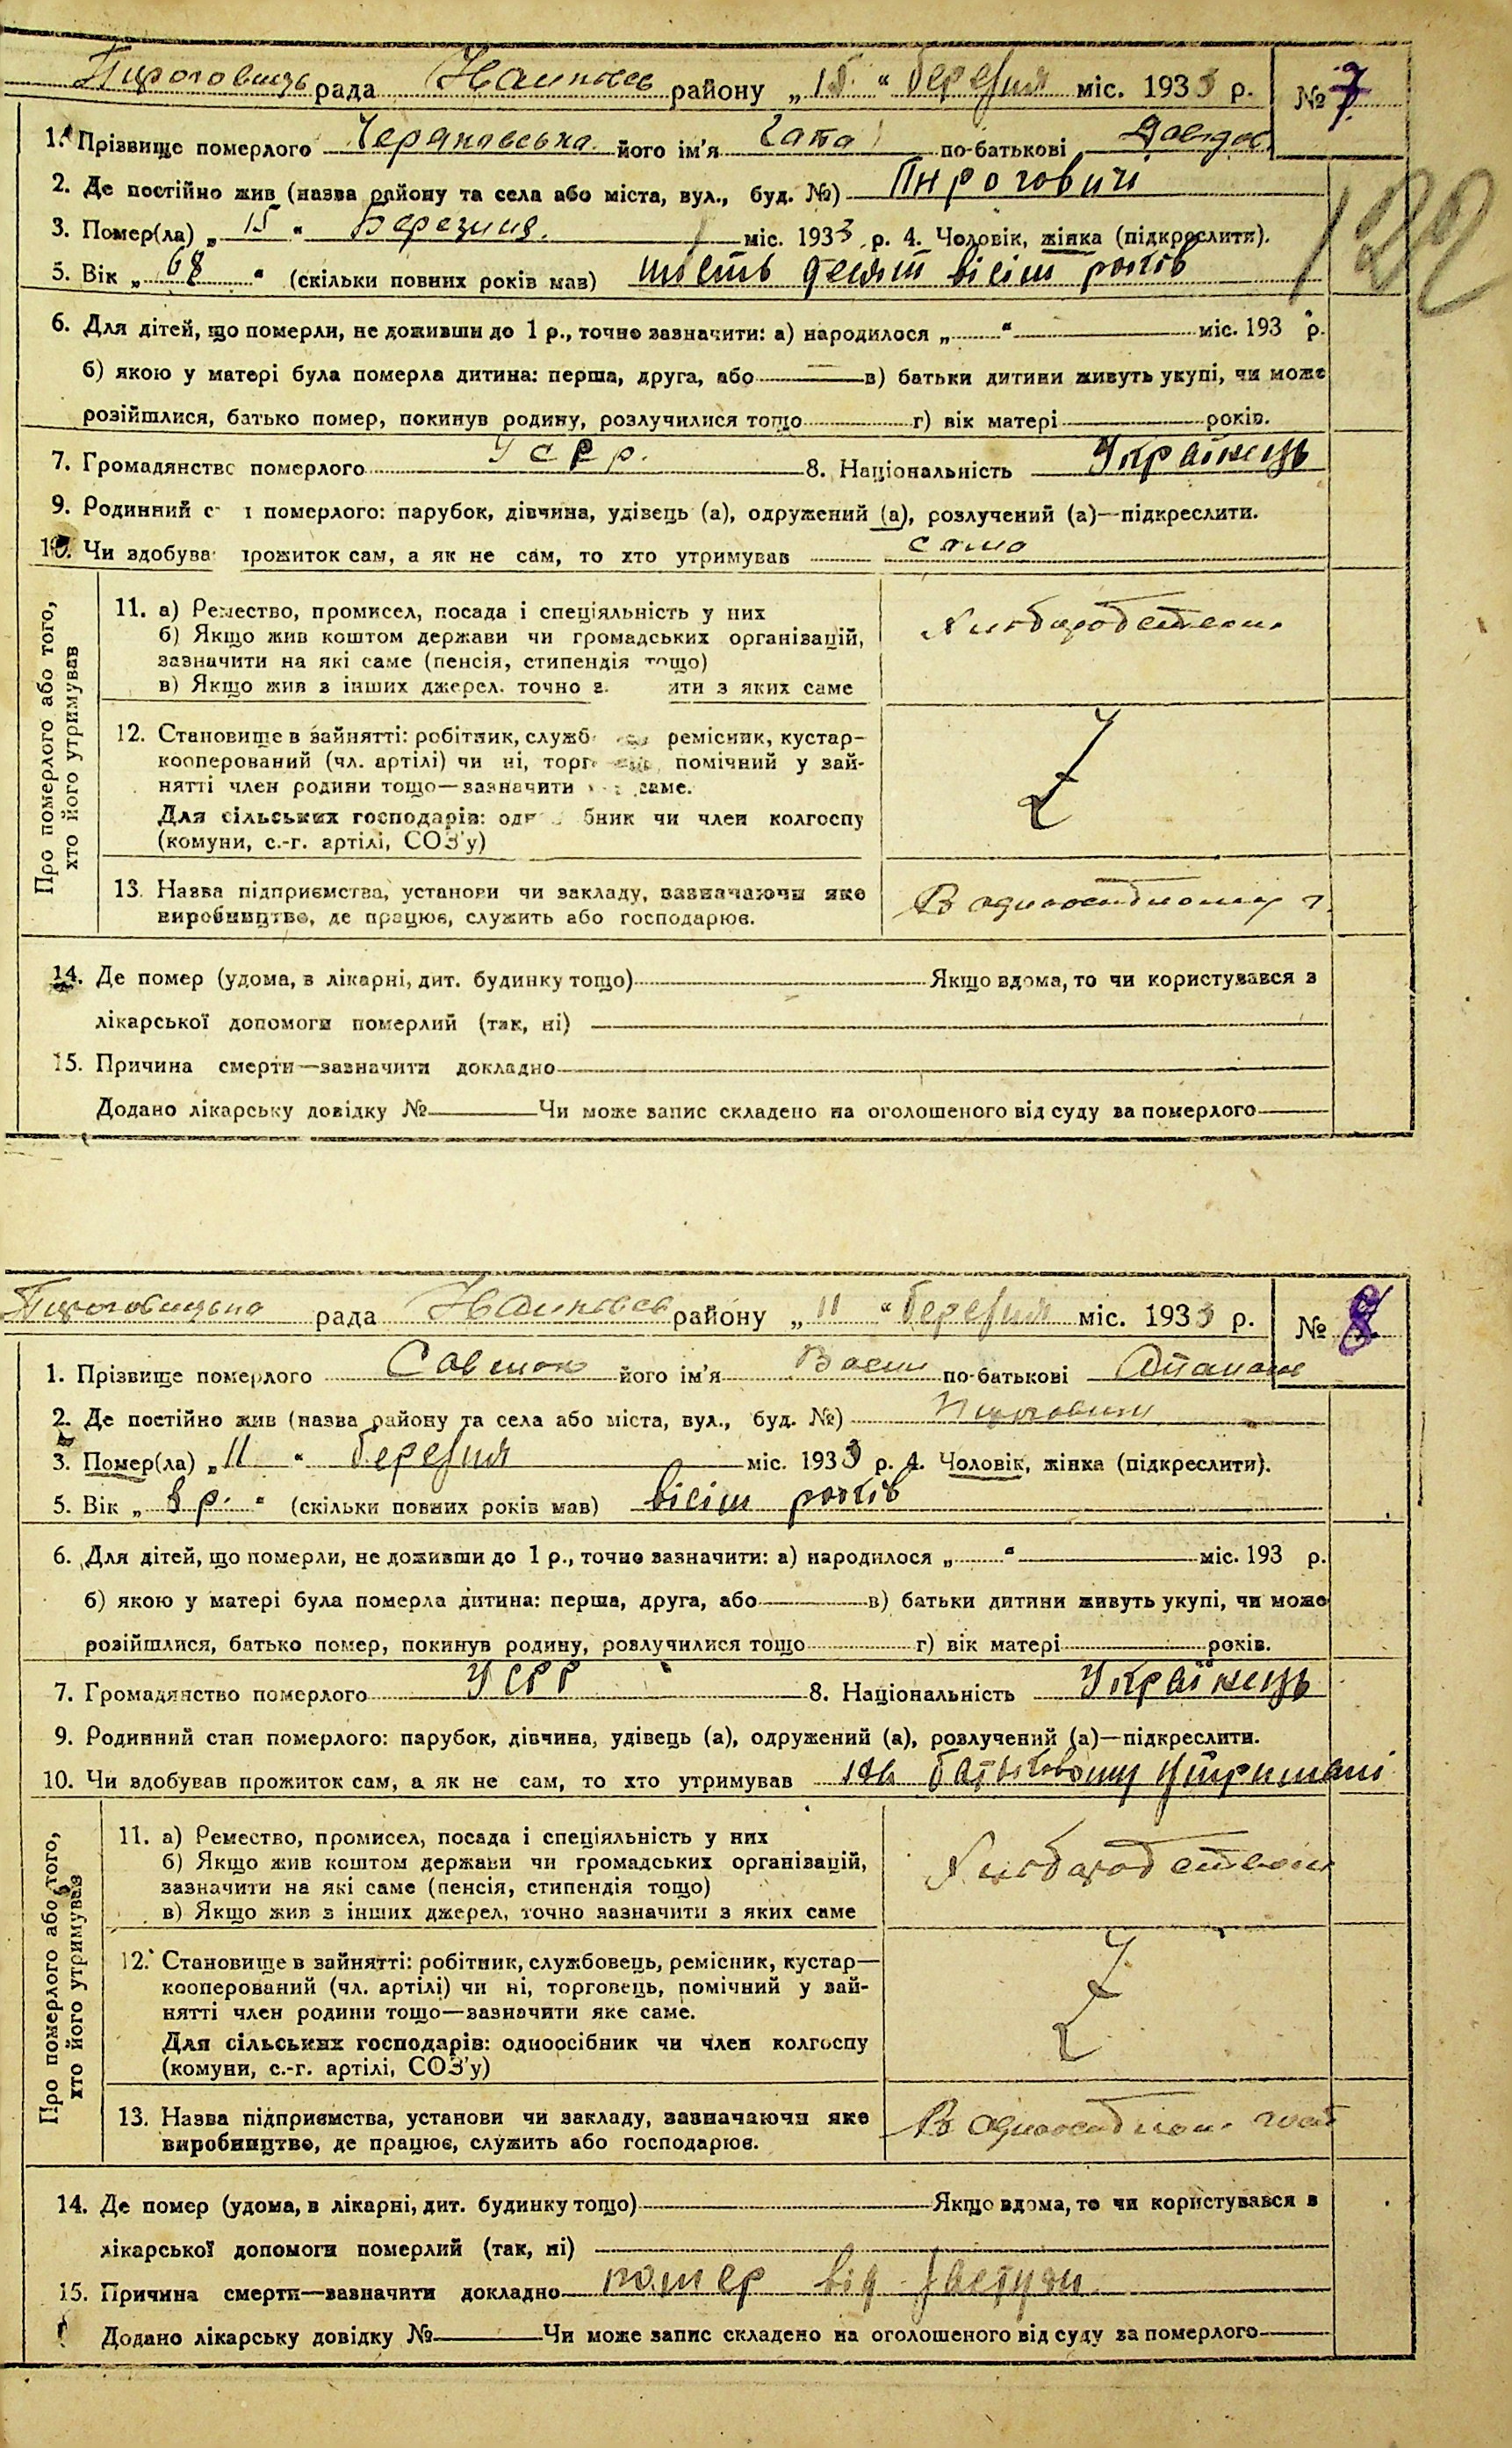 рада районु „15“ березня міс. 1933 р. № 7
1. Прізвище померлого його ім'я по-батькові
2. Де постійно жив (назва району та села або міста, вул., буд. №) Пироговичі
3. Помер(ла) „15“ Березня міс. 1933 р. 4. Чоловік, жінка (підкреслити).
122
5. Вік „68“ (скільки повних років мав) шість десят вісім років
6. Для дітей, що померли, не доживши до 1 р., точно зазначити: а) народилося „ “ міс. 193 р.
б) якою у матері була померла дитина: перша, друга, або — в) батьки дитини живуть укупі, чи може
розійшлися, батько помер, покинув родину, розлучилися тощо г) вік матері років.
7. Громадянство померлого УСРР. 8. Національність Українець
9. Родинний с і померлого: парубок, дівчина, удівець (а), одружений (а), розлучений (а)—підкреслити.
10. Чи здобува прожиток сам, а як не сам, то хто утримував сама
Про померлого або того,
хто його утримував
11. а) Ремество, промисел, посада і спеціяльність у них
б) Якщо жив коштом держави чи громадських організацій,
зазначити на які саме (пенсія, стипендія тощо)
в) Якщо жив з інших джерел, точно з ити з яких саме
12. Становище в зайнятті: робітник, служб ремісник, кустар—
кооперований (чл. артілі) чи ні, торг помічний у зай-
нятті член родини тощо—зазначити саме.
Для сільських господарів: од бник чи член колгоспу
(комуни, с.-г. артілі, СОЗ'у)
13. Назва підприємства, установи чи закладу, зазначаючи яке
виробництво, де працює, служить або господарює.
14. Де помер (удома, в лікарні, дит. будинку тощо) Якщо вдома, то чи користувався з
лікарської допомоги померлий (так, ні)
15. Причина смерти—зазначити докладно
Додано лікарську довідку № Чи може запис складено на оголошеного від суду за померлого
рада району „11“ березня міс. 1933 р. № 8
1. Прізвище померлого Савенок його ім'я по-батькові
2. Де постійно жив (назва району та села або міста, вул., буд. №) Пироговичі
3. Помер(ла) „11“ березня міс. 1933 р. 4. Чоловік, жінка (підкреслити).
5. Вік „8 р.“ (скільки повних років мав) вісім років
6. Для дітей, що померли, не доживши до 1 р., точно зазначити: а) народилося „ “ міс. 193 р.
б) якою у матері була померла дитина: перша, друга, або в) батьки дитини живуть укупі, чи може
розійшлися, батько помер, покинув родину, розлучилися тощо г) вік матері років.
7. Громадянство померлого УСРР 8. Національність Українець
9. Родинний стан померлого: парубок, дівчина, удівець (а), одружений (а), розлучений (а)—підкреслити.
10. Чи здобував прожиток сам, а як не сам, то хто утримував на батьковому утримані
Про померлого або того,
хто його утримував
11. а) Ремество, промисел, посада і спеціяльність у них
б) Якщо жив коштом держави чи громадських організацій,
зазначити на які саме (пенсія, стипендія тощо)
в) Якщо жив з інших джерел, точно зазначити з яких саме
12. Становище в зайнятті: робітник, службовець, ремісник, кустар—
кооперований (чл. артілі) чи ні, торговець, помічний у зай-
нятті член родини тощо—зазначити яке саме.
Для сільських господарів: одноосібник чи член колгоспу
(комуни, с.-г. артілі, СОЗ'у)
13. Назва підприємства, установи чи закладу, зазначаючи яке
виробництво, де працює, служить або господарює.
14. Де помер (удома, в лікарні, дит. будинку тощо) Якщо вдома, то чи користувався в
лікарської допомоги померлий (так, ні)
15. Причина смерти—зазначити докладно помер від
Додано лікарську довідку № Чи може запис складено на оголошеного від суду за померлого